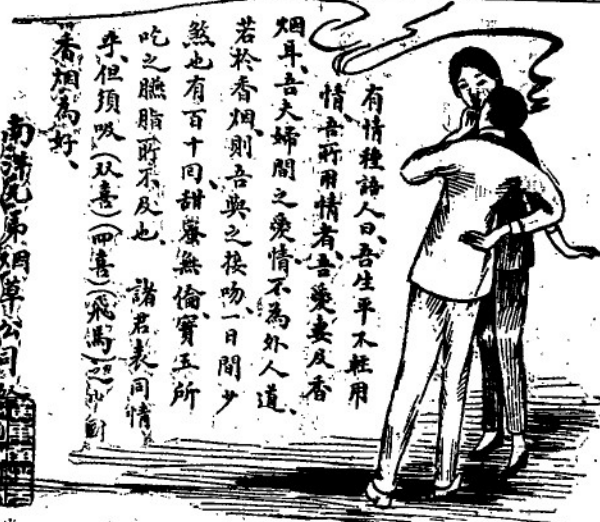 有情種語人曰、吾生平不輕用
情、吾所用情者、吾愛妻及香
烟耳、吾夫婦間之愛情不為外人道、
若於香烟、則吾與之接吻、一日間少
煞也有百十回、甜蜜無倫、實五所
吃之臙脂所不及也、諸君表同情
乎、但須吸(双喜)(四喜)(飛馬)之
香烟為好、
南洋兄弟烟草公司